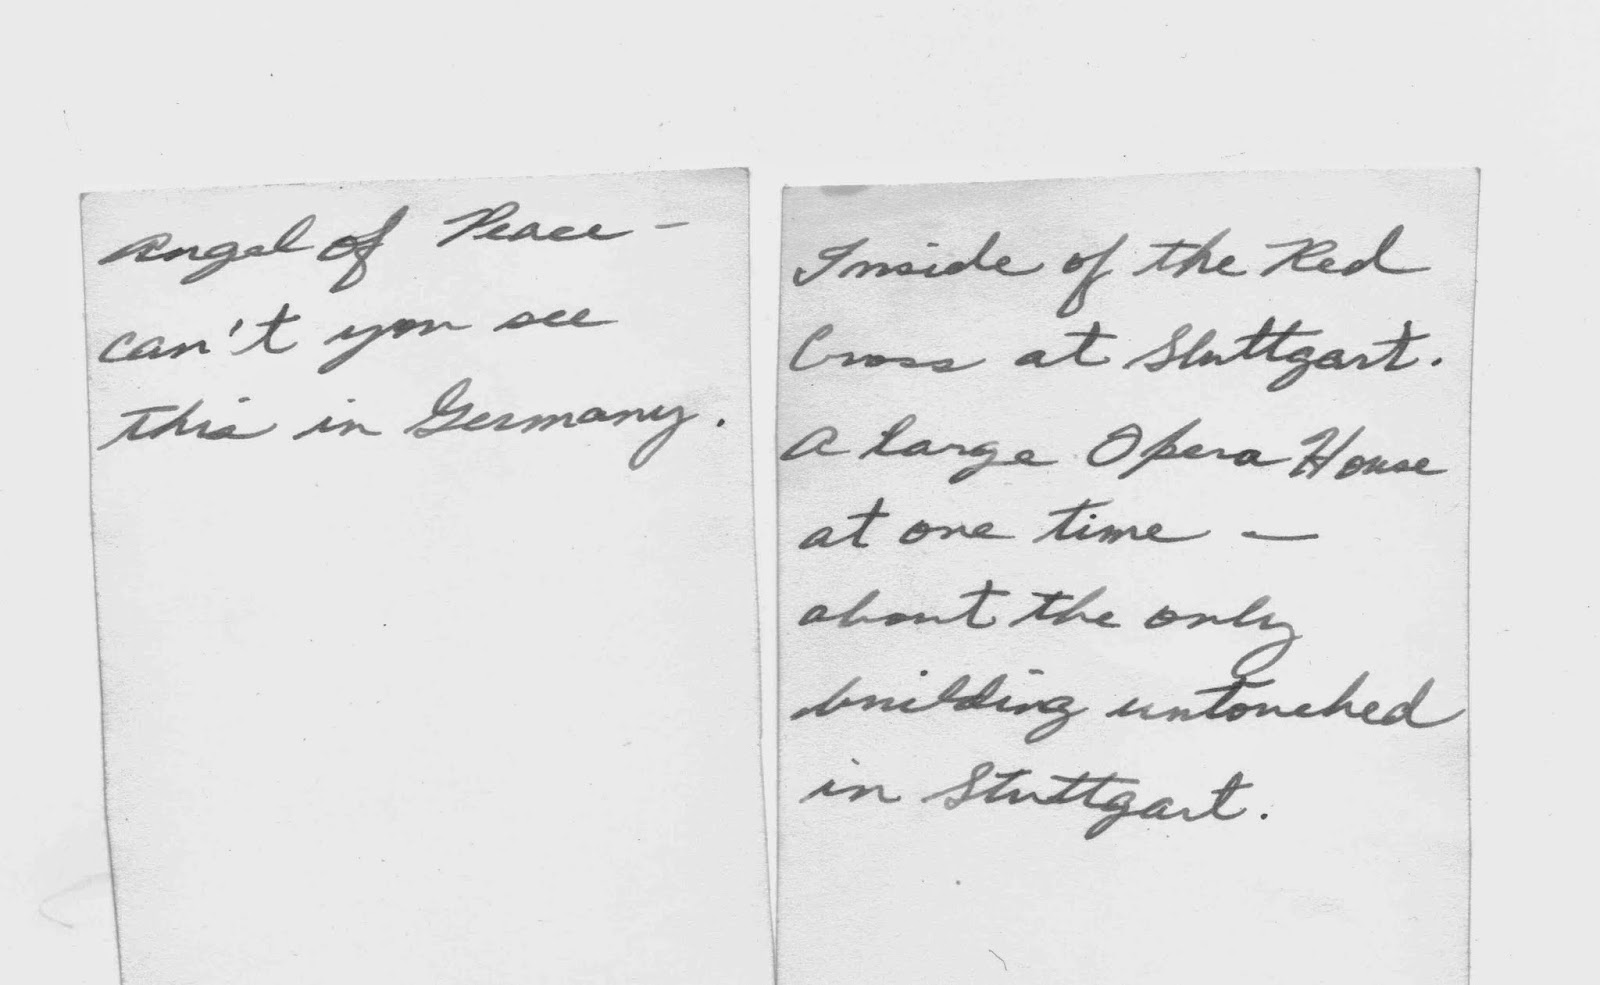 Angel of Peace –
can't you see
this in Germany.
Inside of the Red
Cross at Stuttgart.
A large Opera House
at one time —
about the only
building untouched
in Stuttgart.